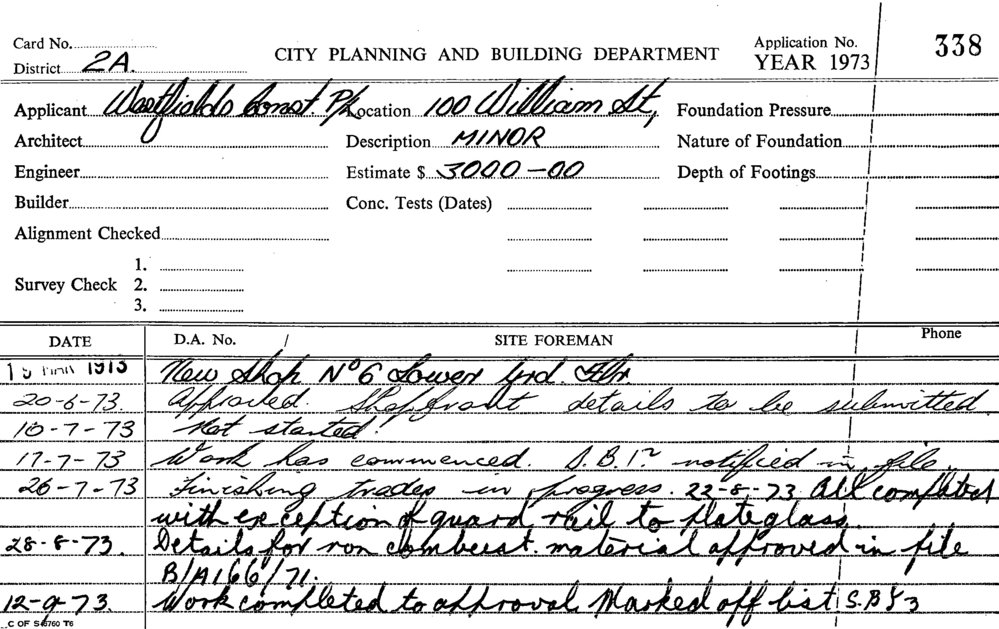 Card No.
CITY PLANNING AND BUILDING DEPARTMENT
Application No. 338
District 2A.
YEAR 1973
Applicant Westfields Const. P/L Location 100 William St, Foundation Pressure
Architect Description MINOR Nature of Foundation
Engineer Estimate $ 3000-00 Depth of Footings
Builder Conc. Tests (Dates)
Alignment Checked
1.
Survey Check 2.
3.
DATE D.A. No. / SITE FOREMAN Phone
1973 New Shop No 6 Lower Grd. Flr.
20-6-73. Approved. Shopfront details to be submitted
10-7-73 Not started.
17-7-73 Work has commenced. notified in file.
26-7-73 Finishing trades in progress. 22-8-73 All completed
with exception of guard rail to plateglass.
28-8-73. Details for non combust. material approved in file
B/A166/71.
12-9-73. Work completed to approval. Marked off list
C OF S